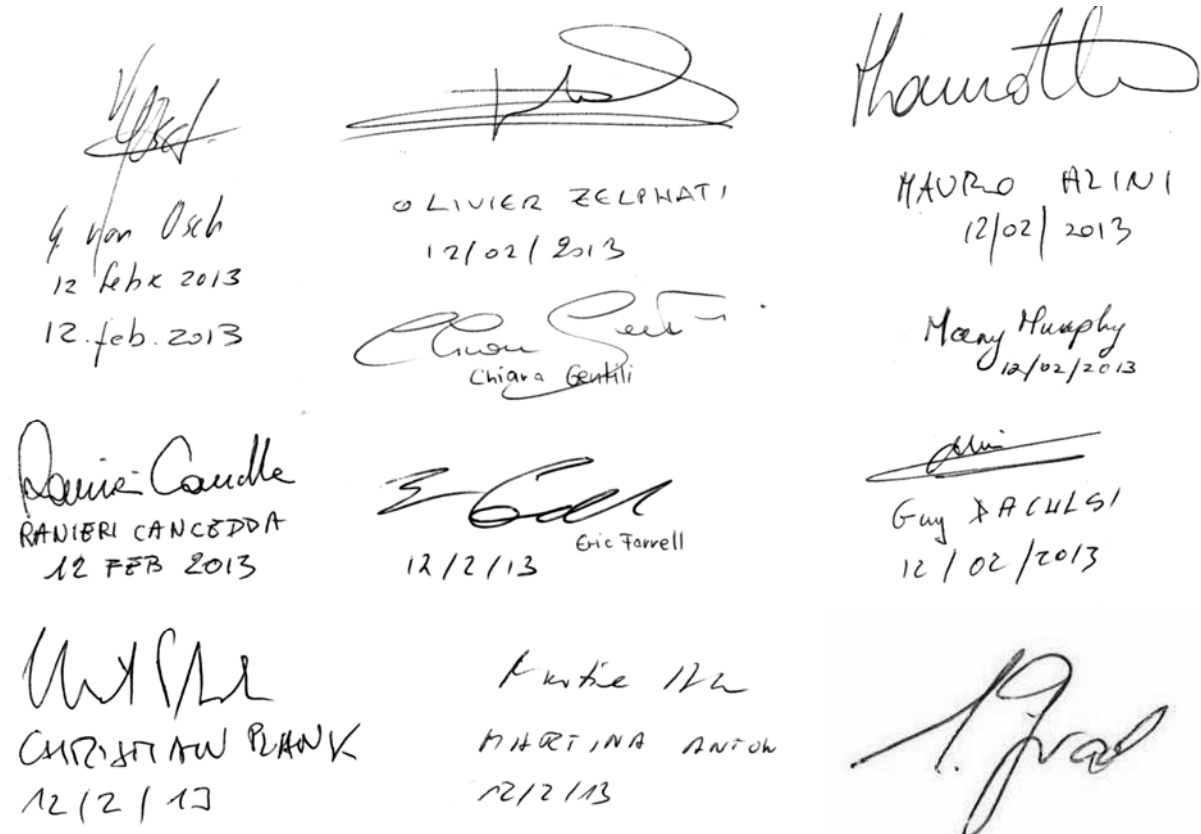 G. van Osch
12 febr 2013
12.feb.2013
OLIVIER ZELPHATI
12/02/2013
MAURO ALINI
12/02/2013
Chiara Gentili
Mary Murphy
12/02/2013
RANIERI CANCEDDA
12 FEB 2013
Eric Farrell
12/2/13
Guy DACULSI
12/02/2013
CHRISTIAN PLANK
12/2/13
MARTINA ANTON
12/2/13